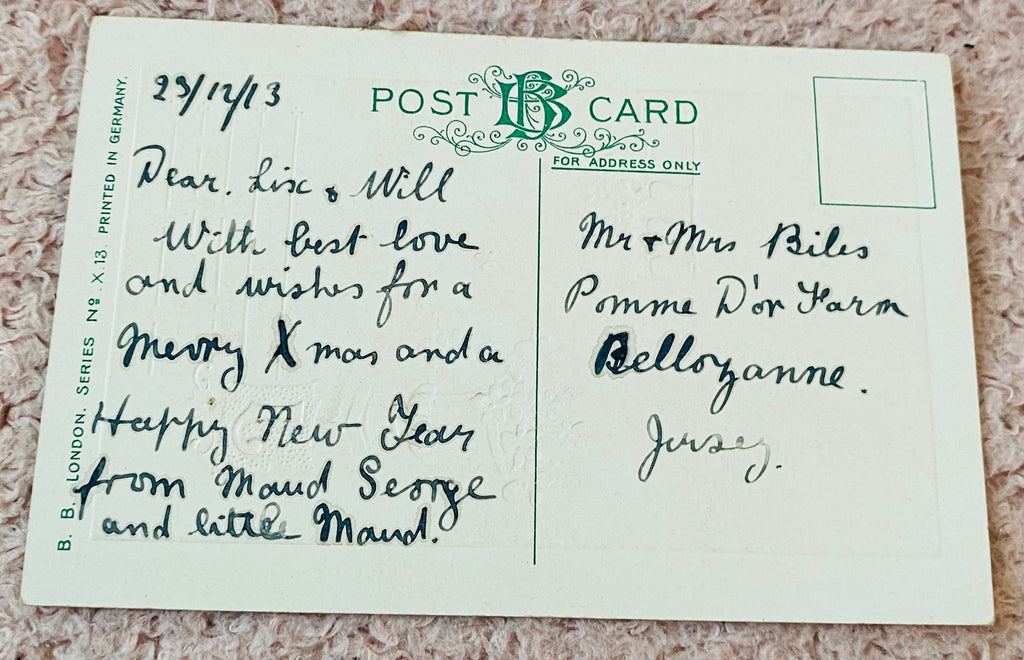 B. B. LONDON. SERIES Nº X.13. PRINTED IN GERMANY.
23/12/13
POST BB CARD
FOR ADDRESS ONLY
Dear. Lix & Will
With best love
and wishes for a
Merry Xmas and a
Happy New Year
from Maud George
and little Maud.
Mr & Mrs Biles
Pomme D'or Farm
Bellozanne.
Jersey.